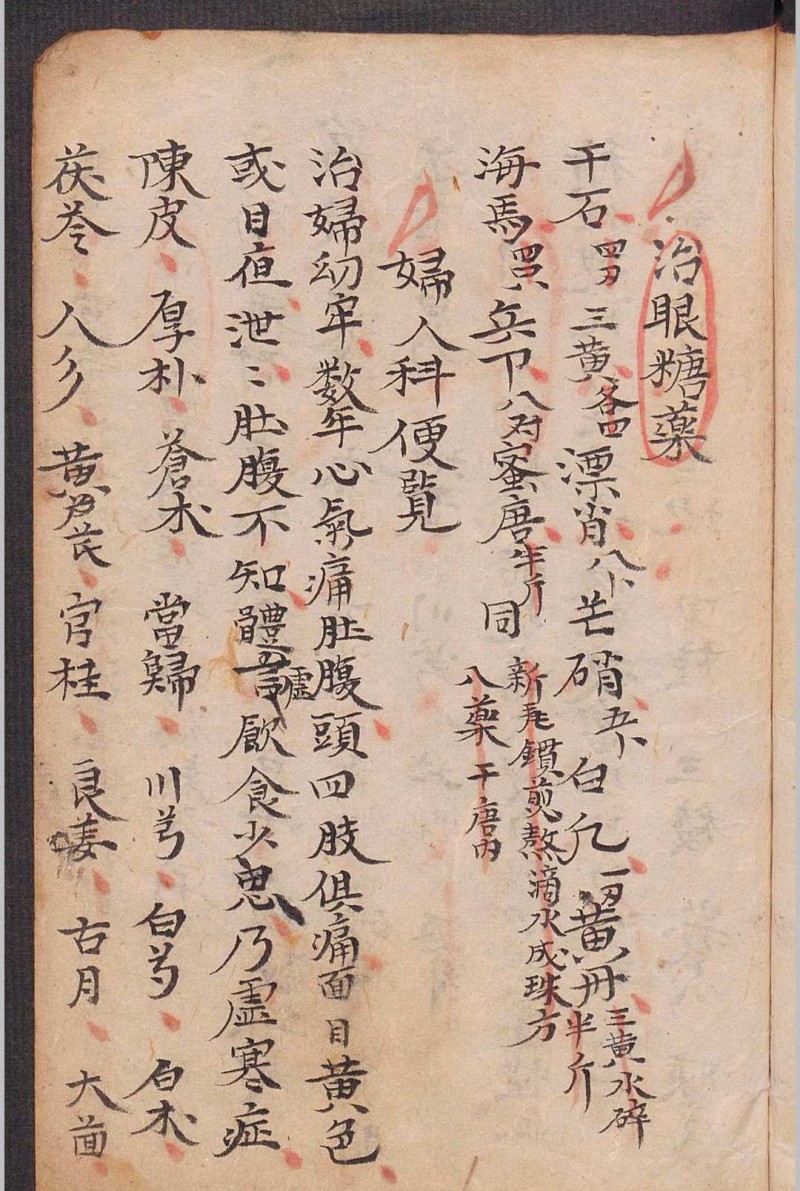 治眼糖薬
干石四刃三黄各四漂肖八卜芒硝五卜白凡一刃黄丹半斤三黄水碎
海馬四八兵下八对蜜唐半斤同新毛鑵煎熬滴水成珠方
八薬干唐内
婦人科便覧
治婦幼牢数年心氣痛肚腹頭四肢俱痛面目黄色
或日夜泄〻肚腹不知體虛飲食少思乃虛寒症
陳皮厚朴蒼术當歸川芎白芍白术
茯苓人參黄芪官桂良姜古月大茴